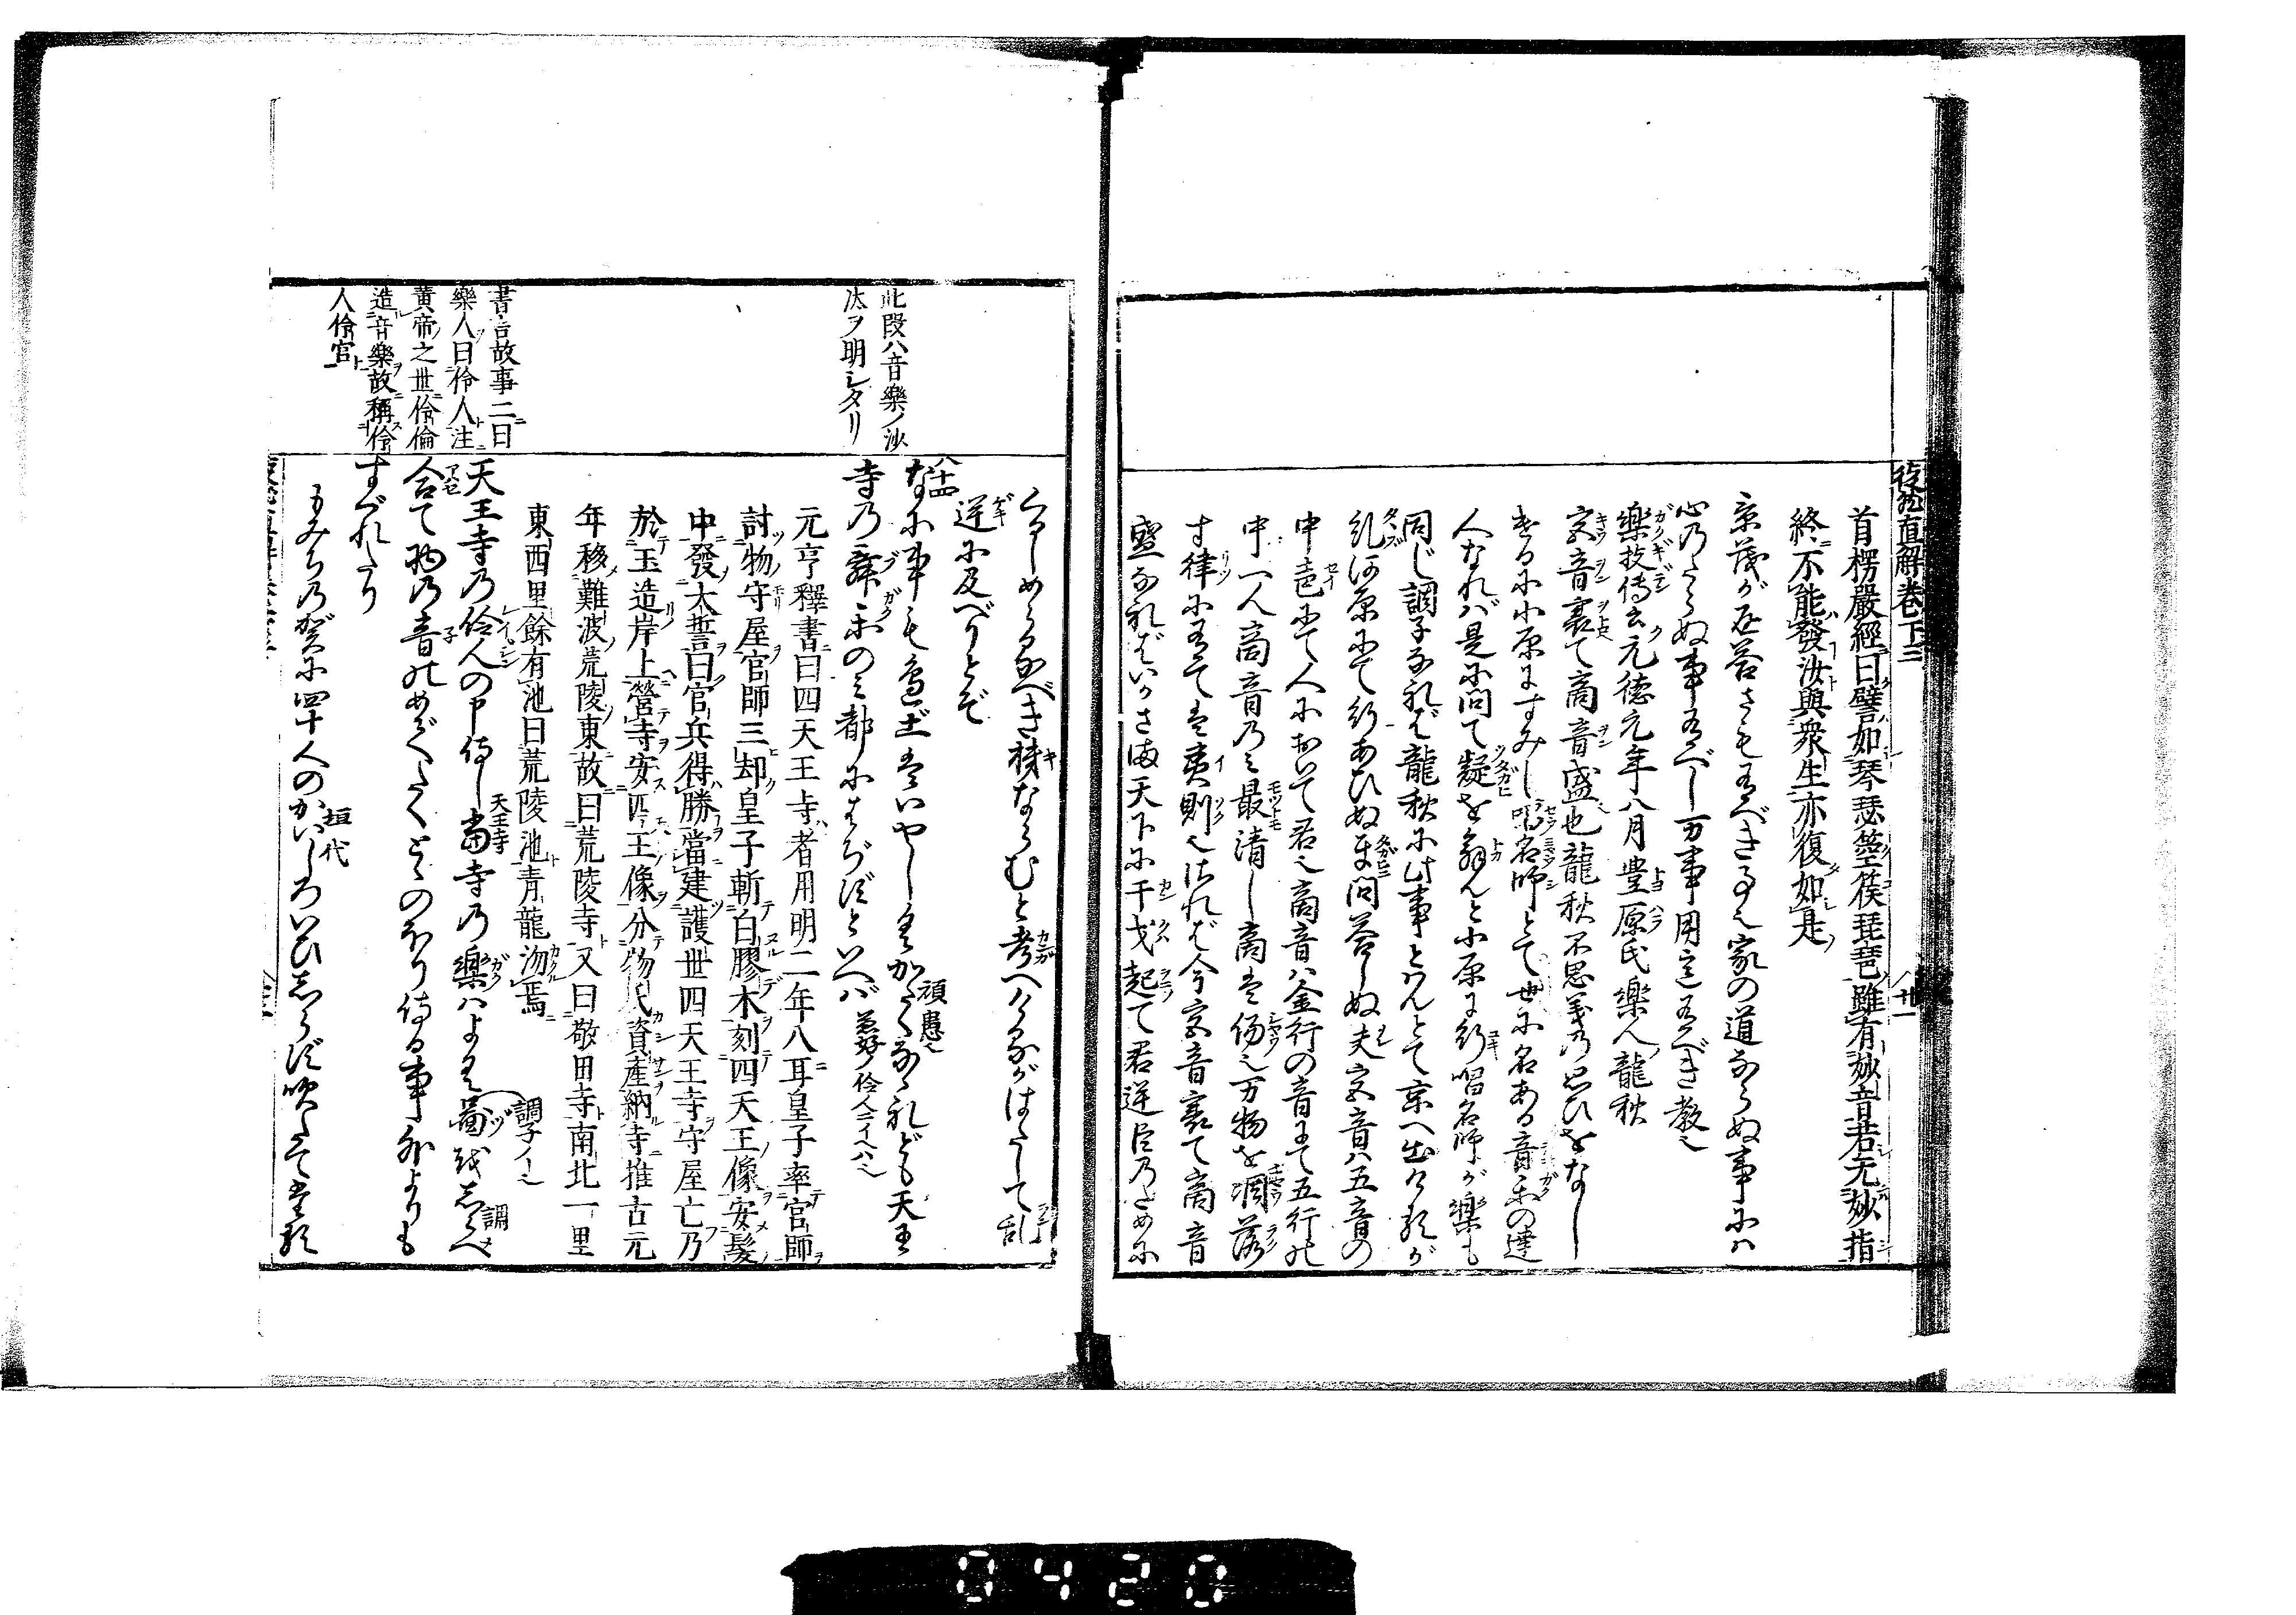 徒然直解巻下三
廿一
首楞嚴經曰譬如琴瑟箜篌琵琶雖有妙音若无妙指
終不能發汝與衆生亦復如是
景茂が返答さも有べき事也家の道ならぬ事にハ
心のたらぬ事有べし万事用意有べき教也
樂技傳云元徳元年八月豊原氏樂人龍秋
宮音裏て商音盛也龍秋不思義の思ひをなし
ける小原にすみし唱名師とて世に名ある音樂の達
人なれバ是に問て凝を
同じ調子なれど龍秋に此事とはんとて京へ出けるが
糺河原にて行あひぬ互問答しぬ夫宮音ハ五音の
中音にて人において君也商音ハ金行の音にて五行の
中一人商音のミ最清し商は傷也万物を凋落
す律に有ては夷則也されど今宮音裏て商音
盛なればいかさま天下に干戈起て君逆臣のために
くるしめらるべき検ならむと考へけるがはたして乱
逆に及べりとぞ
八十四
なに事も邊土はいやしくかたくなゝれども天王
頑愚也
寺の舞樂のミ都にはぢずといへバ
兼好伶人ニイヘハ也
元亨釋書曰四天王寺者用明二年八耳皇子率官師
討物守屋官師三却皇子斬白膠木刻四天王像安髮
中發大誓曰官兵得勝當建護世四天王寺守屋亡乃
於玉造岸上營寺安四王像分物氏資產納寺推古元
年移難波荒陵東故曰荒陵寺又曰敬田寺南北一里
東西里餘有池曰荒陵池青龍沕焉
天王寺の伶人の申侍し當寺の樂ハよく圖をしらべ
天王寺
調子ノ也
調
合て物の音のめでたくとゝのほり侍る事外よりも
すぐれたり
もみぢの賀に四十人のかいしろいひしらず吹たてたる
垣代
此段ハ音樂ノ沙
汰ヲ明シタリ
書言故事二曰
樂人曰伶人注
黄帝之世伶倫
造音樂故稱伶
人伶官
0420